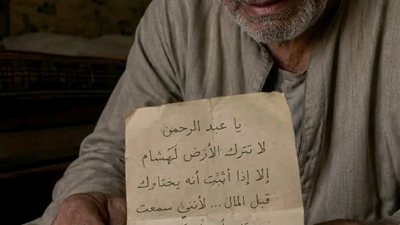 يا عبد الرحمن
لا تترك الأرض لهشام
إلا إذا أثبت أنه يختارك
قبل المال... لأنني سمعت